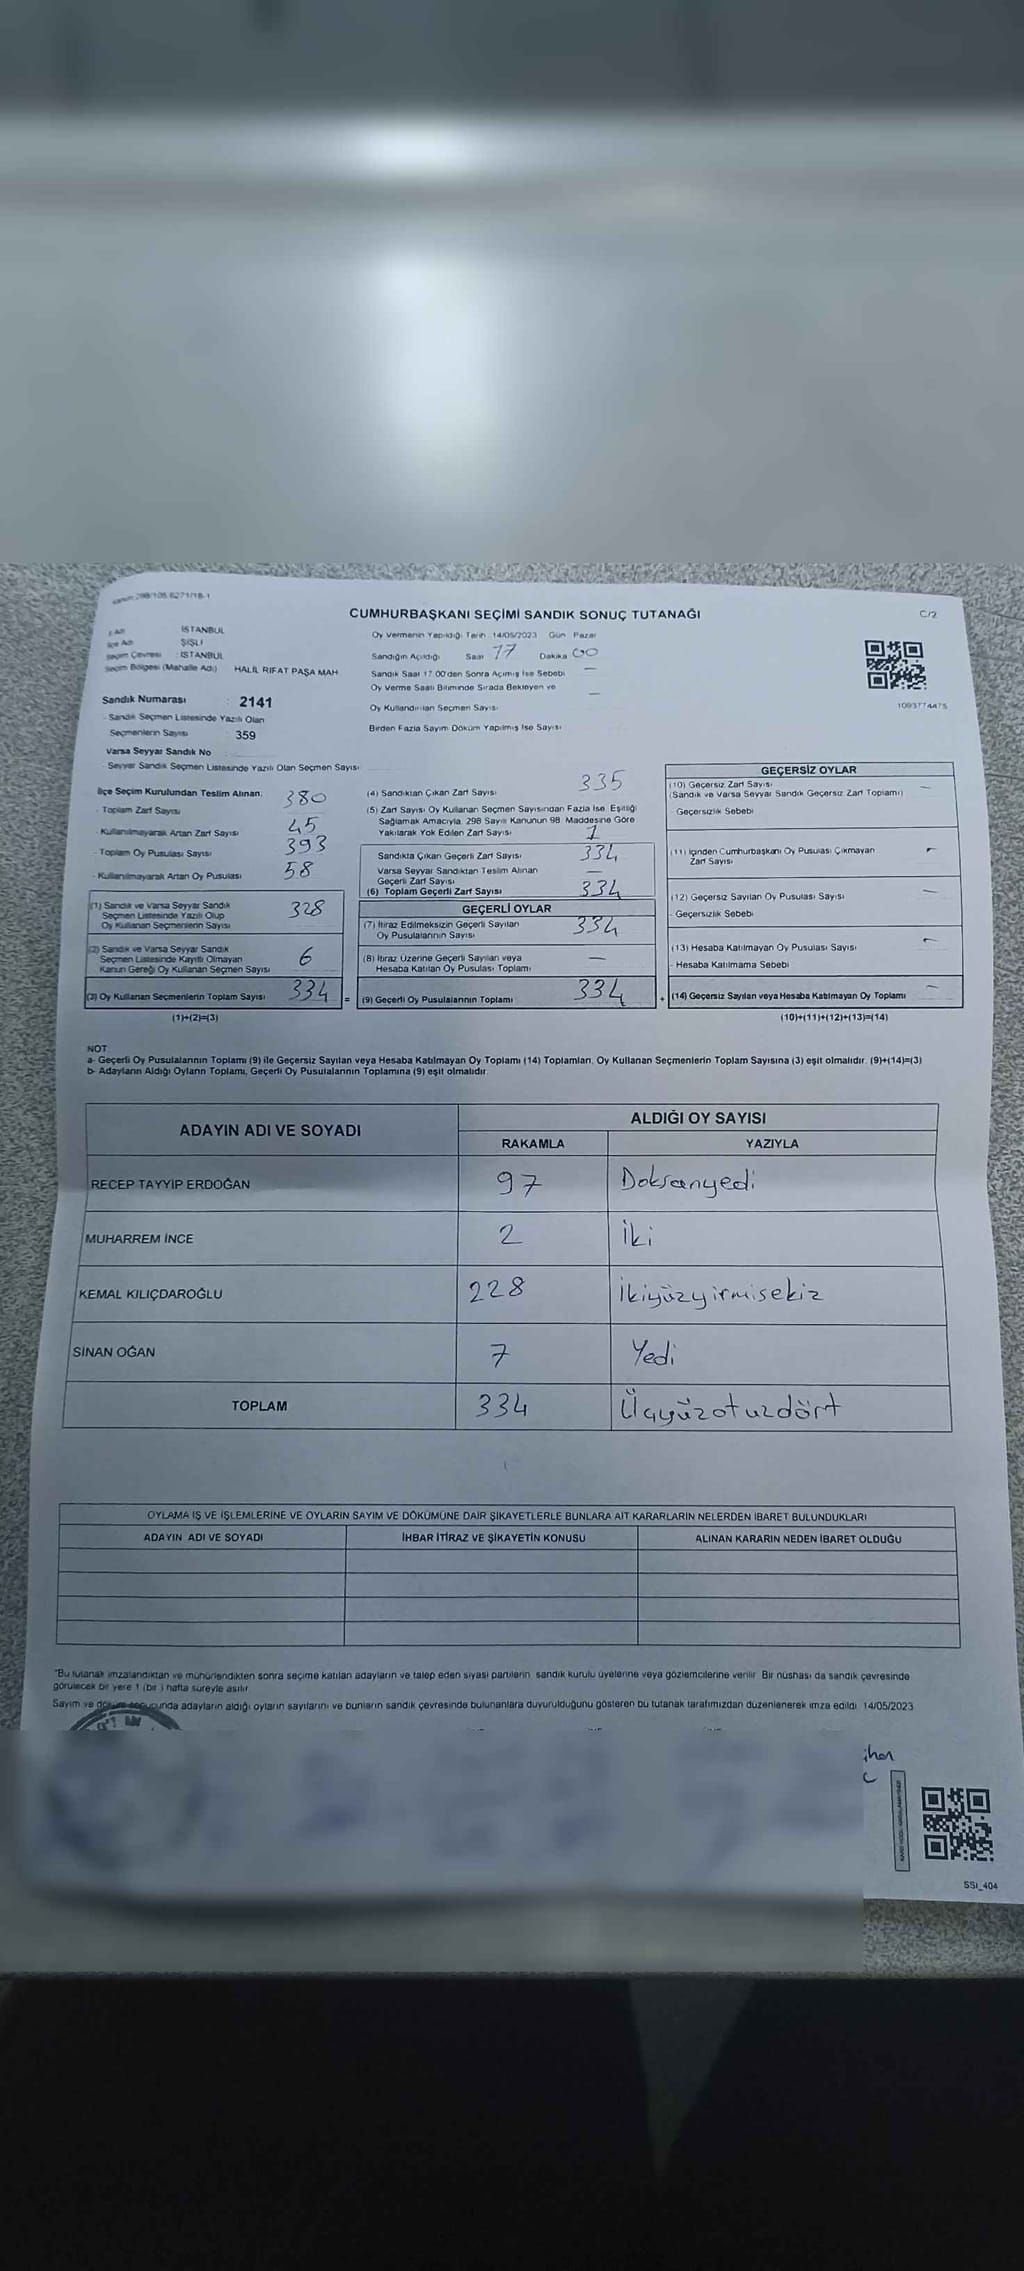 CUMHURBAŞKANI SEÇİMİ SANDIK SONUÇ TUTANAĞI
C/2
İSTANBUL
İlçe Adı ŞİŞLİ
Seçim Çevresi : İSTANBUL
Seçim Bölgesi (Mahalle Adı) HALİL RIFAT PAŞA MAH
Sandık Numarası : 2141
- Sandık Seçmen Listesinde Yazılı Olan
Seçmenlerin Sayısı 359
Varsa Seyyar Sandık No
- Seyyar Sandık Seçmen Listesinde Yazılı Olan Seçmen Sayısı
Oy Vermenin Yapıldığı Tarih : 14/05/2023 Gün Pazar
Sandığın Açıldığı Saat 17 Dakika 00
Sandık Saat 17.00'den Sonra Açılmış İse Sebebi —
Oy Verme Saati Bitiminde Sırada Bekleyen ve
Oy Kullandırılan Seçmen Sayısı —
Birden Fazla Sayım Döküm Yapılmış İse Sayısı
1093774475
İlçe Seçim Kurulundan Teslim Alınan:
- Toplam Zarf Sayısı 380
- Kullanılmayarak Artan Zarf Sayısı 45
- Toplam Oy Pusulası Sayısı 393
- Kullanılmayarak Artan Oy Pusulası 58
(1) Sandık ve Varsa Seyyar Sandık
Seçmen Listesinde Yazılı Olup
Oy Kullanan Seçmenlerin Sayısı 328
(2) Sandık ve Varsa Seyyar Sandık
Seçmen Listesinde Kayıtlı Olmayan
Kanun Gereği Oy Kullanan Seçmen Sayısı 6
(3) Oy Kullanan Seçmenlerin Toplam Sayısı 334 =
(1)+(2)=(3)
(4) Sandıktan Çıkan Zarf Sayısı 335
(5) Zarf Sayısı Oy Kullanan Seçmen Sayısından Fazla İse, Eşitliği
Sağlamak Amacıyla, 298 Sayılı Kanunun 98. Maddesine Göre
Yakılarak Yok Edilen Zarf Sayısı 1
Sandıkta Çıkan Geçerli Zarf Sayısı 334
Varsa Seyyar Sandıktan Teslim Alınan
Geçerli Zarf Sayısı —
(6) Toplam Geçerli Zarf Sayısı 334
GEÇERLİ OYLAR
(7) İtiraz Edilmeksizin Geçerli Sayılan
Oy Pusulalarının Sayısı 334
(8) İtiraz Üzerine Geçerli Sayılan veya
Hesaba Katılan Oy Pusulası Toplamı —
(9) Geçerli Oy Pusulalarının Toplamı 334 +
GEÇERSİZ OYLAR
(10) Geçersiz Zarf Sayısı —
(Sandık ve Varsa Seyyar Sandık Geçersiz Zarf Toplamı)
- Geçersizlik Sebebi
(11) İçinden Cumhurbaşkanı Oy Pusulası Çıkmayan
Zarf Sayısı —
(12) Geçersiz Sayılan Oy Pusulası Sayısı —
- Geçersizlik Sebebi
(13) Hesaba Katılmayan Oy Pusulası Sayısı —
- Hesaba Katılmama Sebebi
(14) Geçersiz Sayılan veya Hesaba Katılmayan Oy Toplamı —
(10)+(11)+(12)+(13)=(14)
NOT:
a- Geçerli Oy Pusulalarının Toplamı (9) ile Geçersiz Sayılan veya Hesaba Katılmayan Oy Toplamı (14) Toplamları, Oy Kullanan Seçmenlerin Toplam Sayısına (3) eşit olmalıdır. (9)+(14)=(3)
b- Adayların Aldığı Oyların Toplamı, Geçerli Oy Pusulalarının Toplamına (9) eşit olmalıdır.
ADAYIN ADI VE SOYADI
ALDIĞI OY SAYISI
RAKAMLA YAZIYLA
RECEP TAYYİP ERDOĞAN 97 Doksanyedi
MUHARREM İNCE 2 İki
KEMAL KILIÇDAROĞLU 228 İkiyüzyirmisekiz
SİNAN OĞAN 7 Yedi
TOPLAM 334 Üçyüzotuzdört
OYLAMA İŞ VE İŞLEMLERİNE VE OYLARIN SAYIM VE DÖKÜMÜNE DAİR ŞİKAYETLERLE BUNLARA AİT KARARLARIN NELERDEN İBARET BULUNDUKLARI
ADAYIN ADI VE SOYADI İHBAR İTİRAZ VE ŞİKAYETİN KONUSU ALINAN KARARIN NEDEN İBARET OLDUĞU
"Bu tutanak imzalandıktan ve mühürlendikten sonra seçime katılan adayların ve talep eden siyasi partilerin, sandık kurulu üyelerine veya gözlemcilerine verilir. Bir nüshası da sandık çevresinde
görülecek bir yere 1 (bir ) hafta süreyle asılır.
Sayım ve döküm sonucunda adayların aldığı oyların sayılarını ve bunların sandık çevresinde bulunanlara duyurulduğunu gösteren bu tutanak tarafımızdan düzenlenerek imza edildi. 14/05/2023
SSI_404